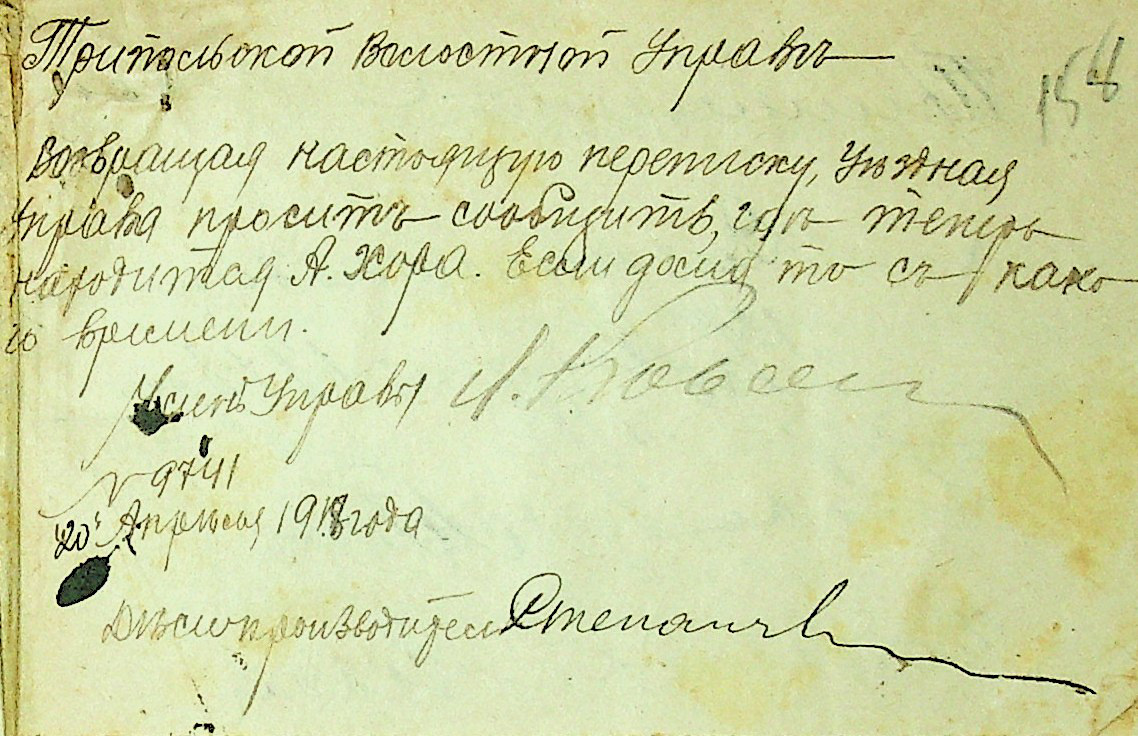 Трипольской Волостной Управѣ
158
Возвращая настоящую переписку, Уѣздная
Управа проситъ сообщить, гдѣ теперь
находится А. Хора. Если дома то съ како
го времени.
Членъ Управы
№ 9741
"20" Апрѣля 1918 года
Дѣлопроизводитель